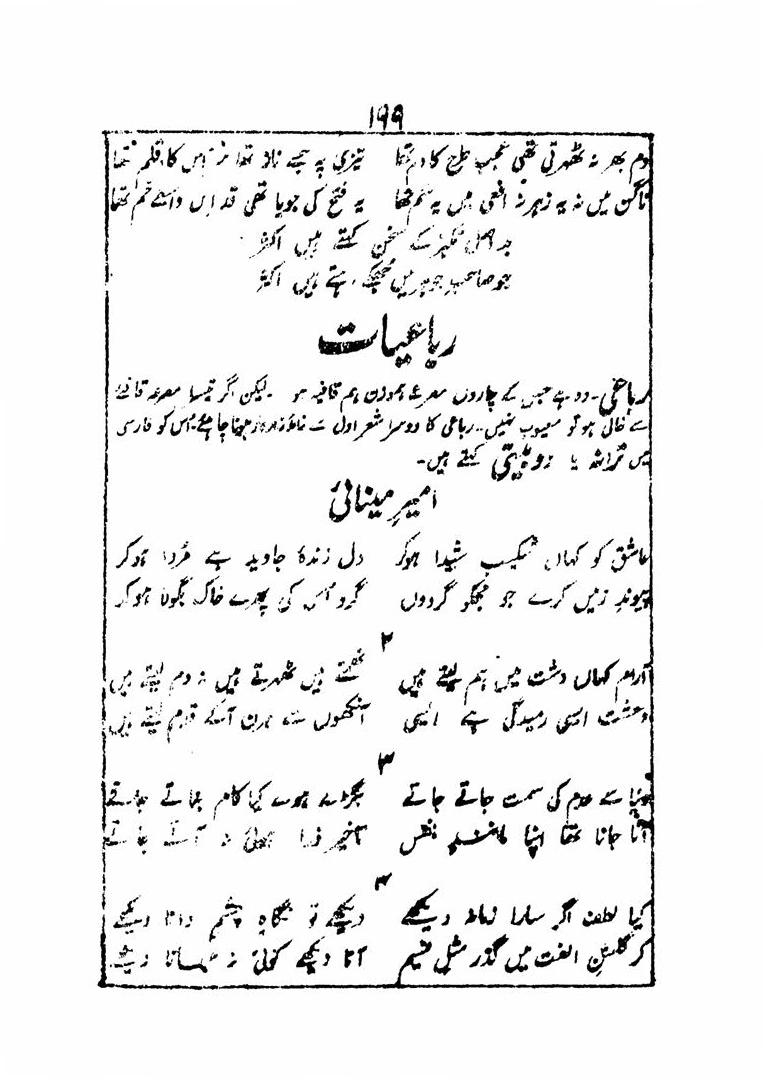 ۱۹۹
دم بھر نہ ٹھہرتی تھی عجب طرح کا دم تھا تیزی پہ جسے ناز تھا سر اس کا قلم تھا
ناگن میں نہ یہ زہر نہ افعی میں یہ سم تھا یہ فتح کی جویا تھی قد اس واسطے خم تھا
بد اصل تکبر کے سخن کہتے ہیں اکثر
جو صاحب جوہر ہیں جھکے رہتے ہیں اکثر
رباعیات
رباعی۔ وہ ہے جس کے چاروں مصرعے ہموزن ہم قافیہ ہو۔ لیکن اگر تیسرا مصرعہ قافیے
سے خالی ہو تو معیوب نہیں۔ رباعی کا دوسرا شعر اول سے زوردار ہونا چاہئے۔ اس کو فارسی
میں ترانہ یا دوبیتی کہتے ہیں۔
امیر مینائی
عاشق کو کہاں شکیب شیدا ہوکر دل زندۂ جاوید ہے مُردا ہوکر
پیوند زمیں کرے جو مجکو گردوں گرد اُس کی پھرے خاک بگولا ہوکر
۲
آرام کہاں دشت میں ہم لیتے ہیں تھمتے ہیں ٹھہرتے ہیں نہ دم لیتے ہیں
وحشت ایسی رمیدگی ہے ایسی آنکھوں سے ہرن آکے قدم لیتے ہیں
۳
دنیا سے عدم کی سمت جاتے جاتے بگڑے ہوے کیا کام بناتے جاتے
آنا جانا تھا اپنا مانند نفس تاخیر ذرا ہوئی نہ آتے جاتے
۴
کیا لطف اگر سارا زمانہ دیکھے دیکھے تو نگاہِ چشم دانا دیکھے
کر گلشنِ الفت میں گذر مثلِ نسیم آتا دیکھے کوئی نہ جاتا دیکھے